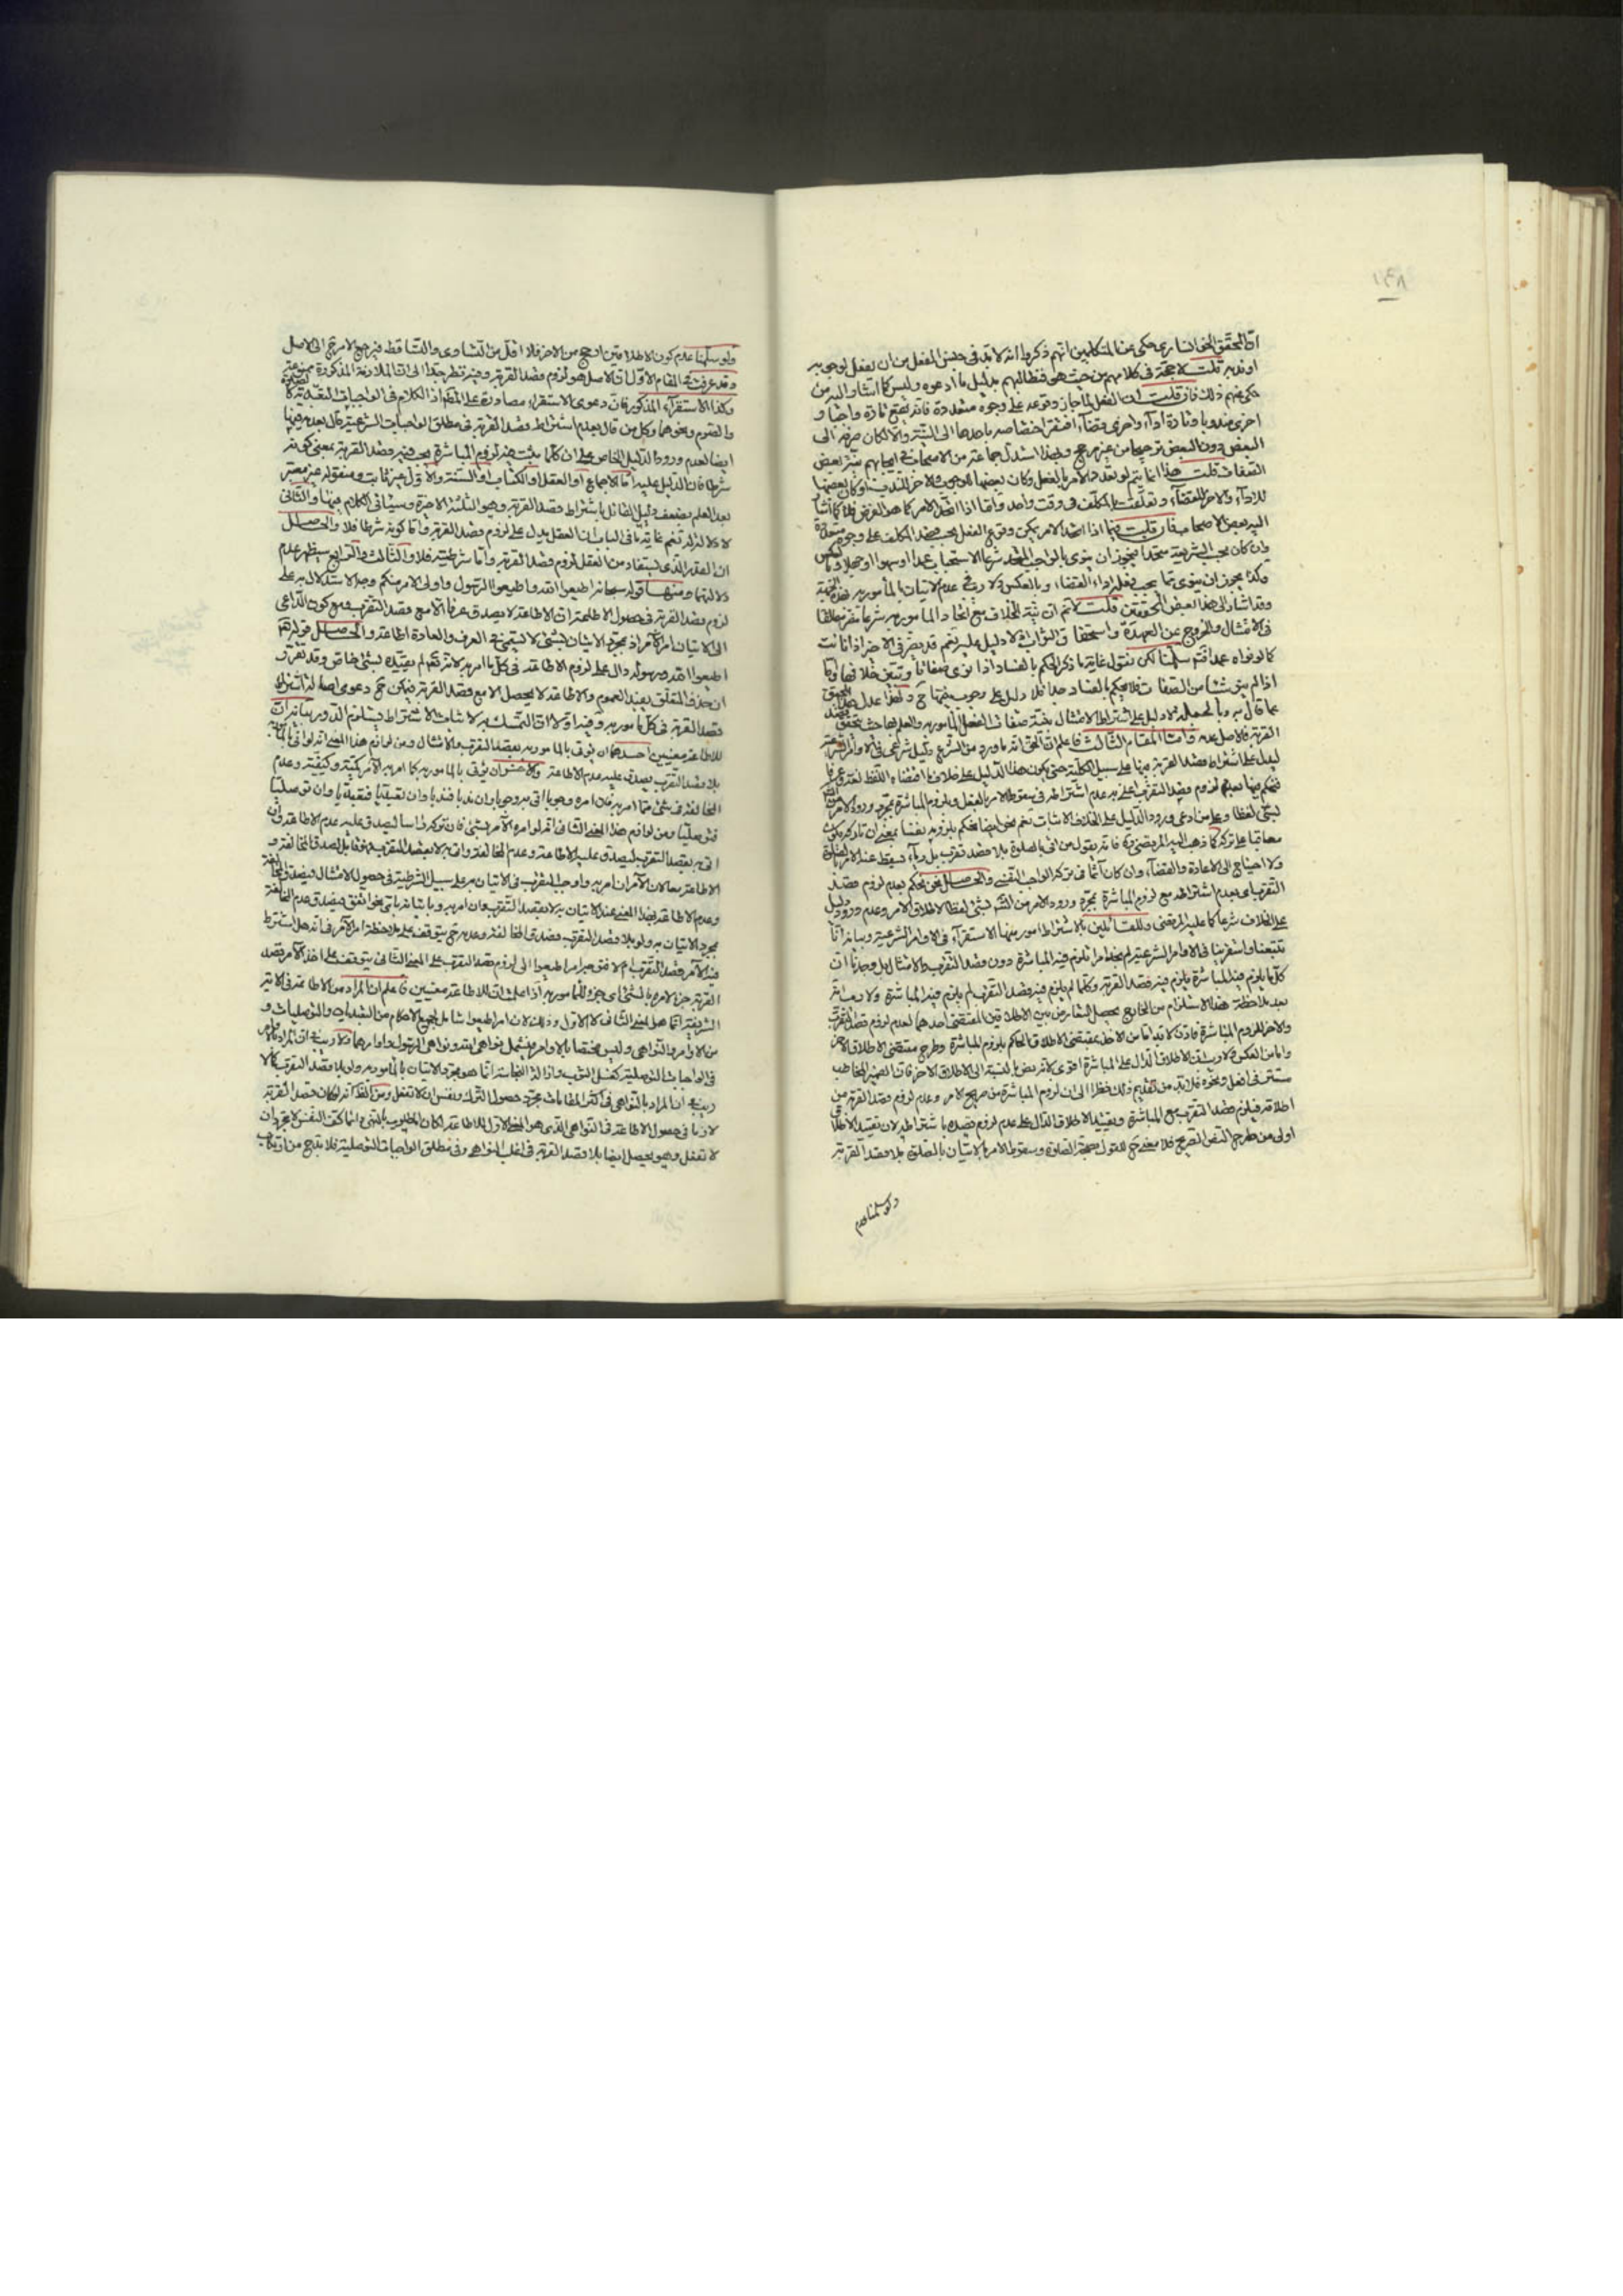 ١٤٨
ان المحقق الخوانساري حكى عن المتكلمين انهم ذكروا انه لا بد في حسن الفعل من ان يفعل لوجوبه
او ندبه قلت لا حجة في كلامهم من حيث هو فنطالبهم بدليل ما ادعوه وليس كما اشار اليه من
حكى عنهم ذلك فان قلت ان الفعل لما جاز وقوعه على وجوه متعددة فانه يقع تارة واجبا و
اخرى مندوبا وتارة اداء واخرى قضاء افتقر اختصاصه باحدها الى النية والا لكان صرفه الى
البعض دون البعض ترجيحا من غير مرجح وبهذا استدل جماعة من الاصحاب في ايجابهم نية بعض
الصفات قلت هذا انما يتم لو تعدد الامر بالفعل وكان بعضها للوجوب والاخر للندب او كان بعضها
للاداء والاخر للقضاء وتعلقت بالمكلف في وقت واحد واما اذا اتحد الامر كما هو الفرض فلا كما اشار
اليه بعض الاصحاب فان قلت فيما اذا اتحد الامر يمكن وقوع الفعل بحسب قصد المكلف على وجوه متعددة
وان كان بحسب الشريعة متحدا فيجوز ان ينوي بالواجب المتحد شرعا الاستحباب عمدا او سهوا او جهلا وبالعكس
وكذا يجوز ان ينوي بما يجب فعله اداء القضاء وبالعكس ولا ريب في عدم الاتيان بالمأمور به
وقد اشار الى هذا بعض المحققين قلت لا نم ان نية الخلاف مع اتحاد المأمور به شرعا مضر مطلقا
في الامتثال والخروج عن العهدة واستحقاق الثواب اذ لا دليل عليه نعم قد يضر في الاخير اذا كانت
كما لو نواه عمدا فتم سلمنا لكن نقول غاية ما ذكر الحكم بالفساد اذا نوى صفاتا وتبين خلافها واما
اذا لم ينو شيئا من الصفات فلا يحكم بالفساد جدا فلا دليل على وجوب نيتها ح ولهذا عدل هذا المحقق
عما قال به وبالجملة لا دليل على اشتراط الامتثال بنية صفات الفعل المأمور به والعلم بها حيث يتحقق قصد
القربة فالاصل عدمه واما المقام الثالث فاعلم ان الحق انه ما ورد من الشرع دليل شرعي في الاوامر الشرعية
ليدل على اشتراط قصد القربة فيها على سبيل الكلية حتى يكون هذا الدليل على خلاف ما اقتضاه اللفظ لغة وعرفا
فنحكم فيها بعدم لزوم قصد التقرب اعني به عدم اشتراطه في سقوط الامر بالفعل وبلزوم المباشرة بمجرد ورود الامر
بشيء لفظا وعلى من ادعى ورود الدليل على الخلاف الاثبات نعم نحن ايضا نحكم بلزومه نفسا بمعنى ان تاركه يكون
معاقبا على تركه كما ذهب اليه المرتضى ره فانه يقول من اتى بالصلوة بلا قصد تقرب بل رياء فيسقط عنه الامر بالصلوة
ولا احتياج الى الاعادة والقضاء وان كان آثما في تركه الواجب النفسي والحاصل نحن نحكم بعدم لزوم قصد
التقرب اي بعدم اشتراطه مع لزوم المباشرة بمجرد ورود الامر من الشرع بشيء لفظا لاطلاق الامر وعدم ورود دليل
على الخلاف شرعا كما عليه المرتضى وللقائلين بالاشتراط امور منها الاستقراء في الاوامر الشرعية وبيانه انا
تتبعنا واستقرينا في الاوامر الشرعية لم نجد امرا تلزم فيه المباشرة دون قصد التقرب والامتثال بل وجدنا ان
كلما يلزم فيه المباشرة يلزم فيه قصد القربة وكلما لم يلزم فيه قصد التقرب لم يلزم فيه المباشرة ولا ريب انه
بعد ملاحظة هذا الاستلزام من الخارج يحصل التعارض بين الاطلاقين المقتضي احدهما لعدم لزوم قصد التقرب
والاخر للزوم المباشرة فاذن لا بد اما من الاخذ بمقتضى الاطلاق الحاكم بلزوم المباشرة وطرح مقتضى الاطلاق الاخر
واما من العكس ولا ريب ان الاطلاق الدال على المباشرة اقوى لانه نص بالنسبة الى الاطلاق الاخر فان الضمير المخاطب
مستتر في افعل ونحوه فلا بد من تقديم ذلك نظرا الى ان لزوم المباشرة من صريح الامر وعدم لزوم قصد القربة من
اطلاقه فيلزم قصد التقرب مع المباشرة وتقييد الاطلاق الدال على عدم لزوم قصده باشتراطه لان تقييد الاطلاق
اولى من طرح النص الصريح فلا معنى ح للقول بصحة الصلوة وسقوط الامر بالاتيان بالصلوة بلا قصد القربة
ولو سلمنا عدم
ولو سلمنا عدم كون الاطلاقين ارجح من الاخر فلا اقل من التساوي والتساقط فيرجع الامر ح الى الاصل
وقد عرفت في المقام الاول ان الاصل هو لزوم قصد القربة وفيه نظر جدا اما اولا فلان الملازمة المذكورة ممنوعة
وكذا الاستقراء المذكور فان دعوى الاستقراء مصادرة على المقام اذ الكلام في الواجبات التعبدية كالصلوة
والصوم ونحوهما وكل من قال بعدم اشتراط قصد القربة في مطلق الواجبات الشرعية قال بعدمه فيها
ايضا لعدم ورود الدليل الخاص على ان كلما يثبت فيه لزوم المباشرة يجب فيه قصد القربة بمعنى كونه
شرطا فان الدليل عليه اما الاجماع او العقل او الكتاب او السنة والاول غير ثابت ومنقوله غير معتبر
بعد العلم بضعف دليل القائل باشتراط قصد القربة وهو الثلثة الاخيرة وسيأتي الكلام فيها والثاني
لا دلالة له نعم غاية ما في الباب ان العقل يدل على لزوم قصد القربة واما كونه شرطا فلا والحاصل
ان القدر الذي يستفاد من العقل لزوم قصد القربة واما شرطيته فلا والثالث والرابع سيظهر عدم
دلالتهما ومنها قوله سبحانه اطيعوا الله واطيعوا الرسول واولي الامر منكم وجه الاستدلال به على
لزوم قصد القربة في حصول الاطاعة ان الاطاعة لا يصدق عرفا الا مع قصد التقرب ومع كون الداعي
الى الاتيان امر الآمر اذ بمجرد الاتيان بشيء لا يستحق في العرف والعادة اطاعة والحاصل قوله تعالى
اطيعوا الله ورسوله دال على لزوم الاطاعة في كل ما امر به لانه تعالى لم يقيده بشيء خاص وقد تقرر
ان حذف المتعلق يفيد العموم والاطاعة لا يحصل الا مع قصد القربة فيمكن ح دعوى اصالة اشتراط
قصد القربة في كل مأمور به وفيه اولا ان التمسك به لاثبات الاشتراط يستلزم الدور بيانه ان
للاطاعة معنيين احدهما ان يؤتى بالمأمور به بقصد التقرب والامتثال ومن لوازم هذا المعنى انه لو اتى بالمأمور به
بلا قصد التقرب يصدق عليه عدم الاطاعة والاخر ان يؤتى بالمأمور به كما امر به الآمر كمية وكيفية وعدم
المخالفة في شيء مما امر به فان امره وجوبا اتى به وجوبا وان ندبا فندبا وان تعبديا فتعبديا وان توصليا
فتوصليا ومن لوازم هذا المعنى الثاني انه لو امره الآمر بشيء فان تركه راسا ليصدق عليه عدم الاطاعة وان
اتى به بقصد التقرب ليصدق عليه الاطاعة وعدم المخالفة وان اتى به لا بقصد التقرب فقابل لصدق المخالفة و
الاطاعة معا لان الآمر ان امر به واوجب التقرب في الاتيان به على سبيل الشرطية في حصول الامتثال فيصدق المخالفة
وعدم الاطاعة بهذا المعنى عند الاتيان به لا بقصد التقرب وان امر به وباتيانه باي نحو اتفق فيصدق عدم المخالفة
بمجرد الاتيان به ولو بلا قصد التقرب فصدق المخالفة وعدمه ح يتوقف على ملاحظة امر الآمر فانه هل اشترط
فيه الآمر قصد التقرب ام لا فتوجيه امر اطيعوا الى لزوم قصد التقرب على المعنى الثاني يتوقف على اخذ الآمر قصد
القربة جزء لامره بالشيء اي جزء للمأمور به اذا علمت ان للاطاعة معنيين فاعلم ان المراد من الاطاعة في الآية
الشريفة انما هو المعنى الثاني لا الاول وذلك لان امر اطيعوا شامل لجميع الاحكام من التعبديات والتوصليات و
من الاوامر والنواهي وليس مختصا بالاوامر فيشمل نواهي الله ونواهي الرسول واوامرهما ولا ريب في ان المراد بالامر
في الواجبات التوصلية كغسل الثوب وازالة النجاسة انما هو مجرد الاتيان بالمأمور به ولو بلا قصد التقرب كما لا
ريب في ان المراد بالنواهي في اكثر المقامات مجرد حصول الترك ونفس ان لا تفعل ومن الظاهر انه لو كان قصد القربة
لازما في حصول الاطاعة في النواهي الذي هو المعنى الاول للاطاعة لكان المطلوب بالنهي دائما كف النفس لا مجرد ان
لا تفعل وهو يحصل ايضا بلا قصد القربة في اغلب النواهي وفي مطلق الواجبات التوصلية فلا بد ح من ارتكاب